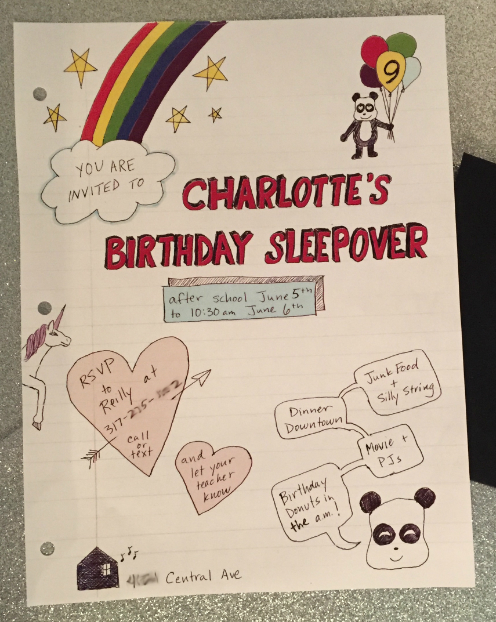 YOU ARE
INVITED TO
9
CHARLOTTE'S
BIRTHDAY SLEEPOVER
after school June 5th
to 10:30 am June 6th
RSVP
to
Reilly at
317-
call
or
text
and
let your
teacher
know
Junk Food
+
Silly String
Dinner
Downtown
Movie +
PJs
Birthday
Donuts in
the a.m.!
Central Ave